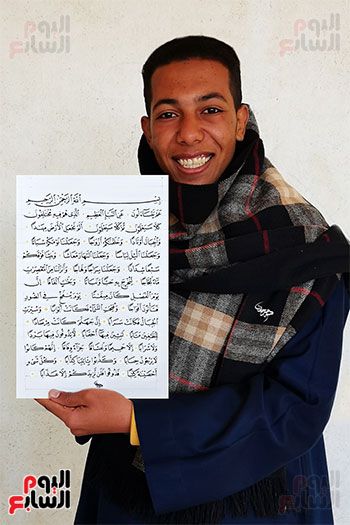 اليوم
السابع
بسم الله الرحمن الرحيم
عم يتساءلون عن النبإ العظيم الذي هم فيه مختلفون
كلا سيعلمون ثم كلا سيعلمون ألم نجعل الأرض مهادا
والجبال أوتادا وخلقناكم أزواجا وجعلنا نومكم سباتا
وجعلنا الليل لباسا وجعلنا النهار معاشا وبنينا فوقكم
سبعا شدادا وجعلنا سراجا وهاجا وأنزلنا من المعصرات
ماء ثجاجا لنخرج به حبا ونباتا وجنات ألفافا إن
يوم الفصل كان ميقاتا يوم ينفخ في الصور
فتأتون أفواجا وفتحت السماء فكانت أبوابا وسيرت
الجبال فكانت سرابا إن جهنم كانت مرصادا
للطاغين مآبا لابثين فيها أحقابا لا يذوقون فيها بردا
ولا شرابا إلا حميما وغساقا جزاء وفاقا إنهم كانوا
لا يرجون حسابا وكذبوا بآياتنا كذابا وكل شيء
أحصيناه كتابا فذوقوا فلن نزيدكم إلا عذابا
اليوم
السابع
اليوم
السابع